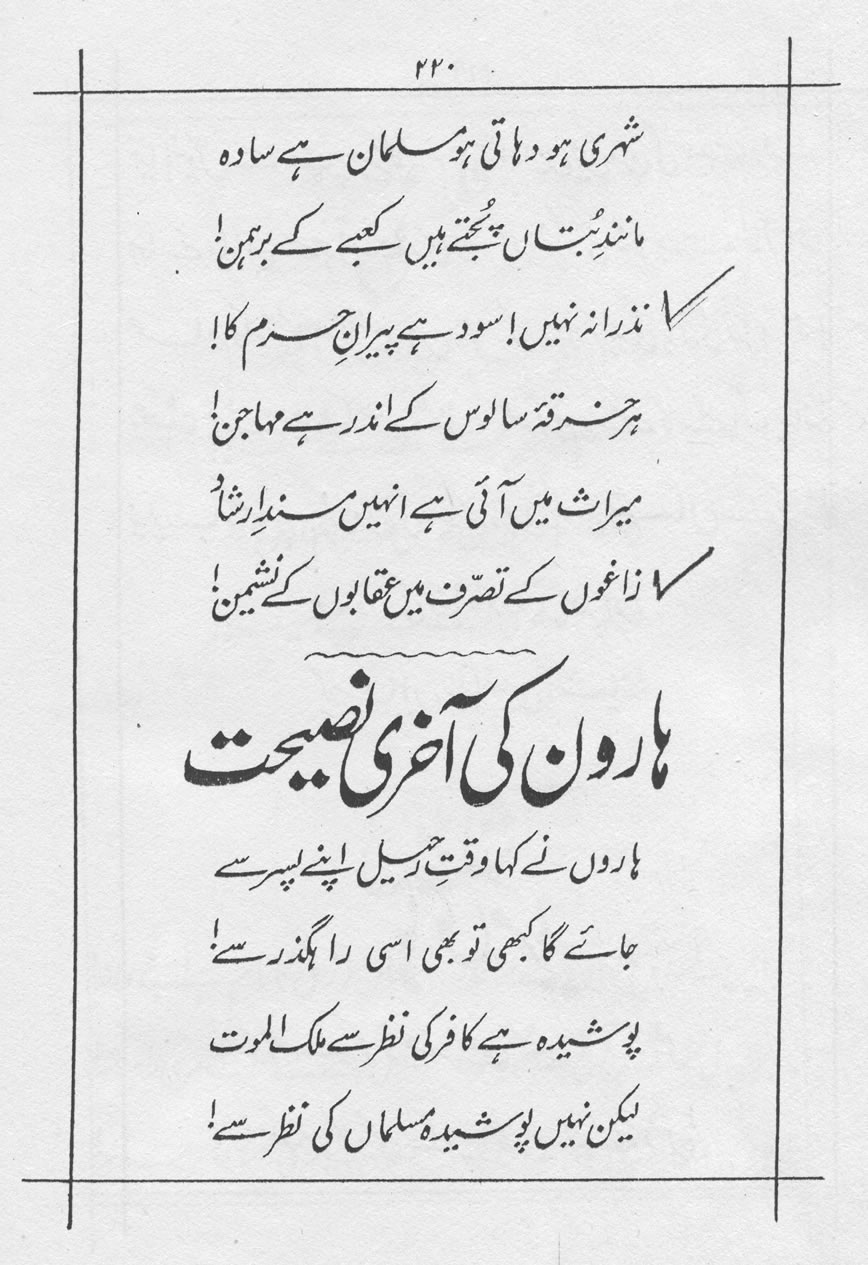 ۲۲۰
شہری ہو دہاتی ہو مسلمان ہے سادہ
مانندِ بُتاں پُجتے ہیں کعبے کے برہمن!
نذرانہ نہیں! سود ہے پیرانِ حرم کا!
ہر خرقۂ سالوس کے اندر ہے مہاجن!
میراث میں آئی ہے انہیں مسندِ ارشاد
زاغوں کے تصرّف میں عقابوں کے نشیمن!
ہارون کی آخری نصیحت
ہاروں نے کہا وقتِ رحیل اپنے پسر سے
جائے گا کبھی تو بھی اسی راہگذر سے!
پوشیدہ ہے کافر کی نظر سے ملک الموت
لیکن نہیں پوشیدہ مسلماں کی نظر سے!